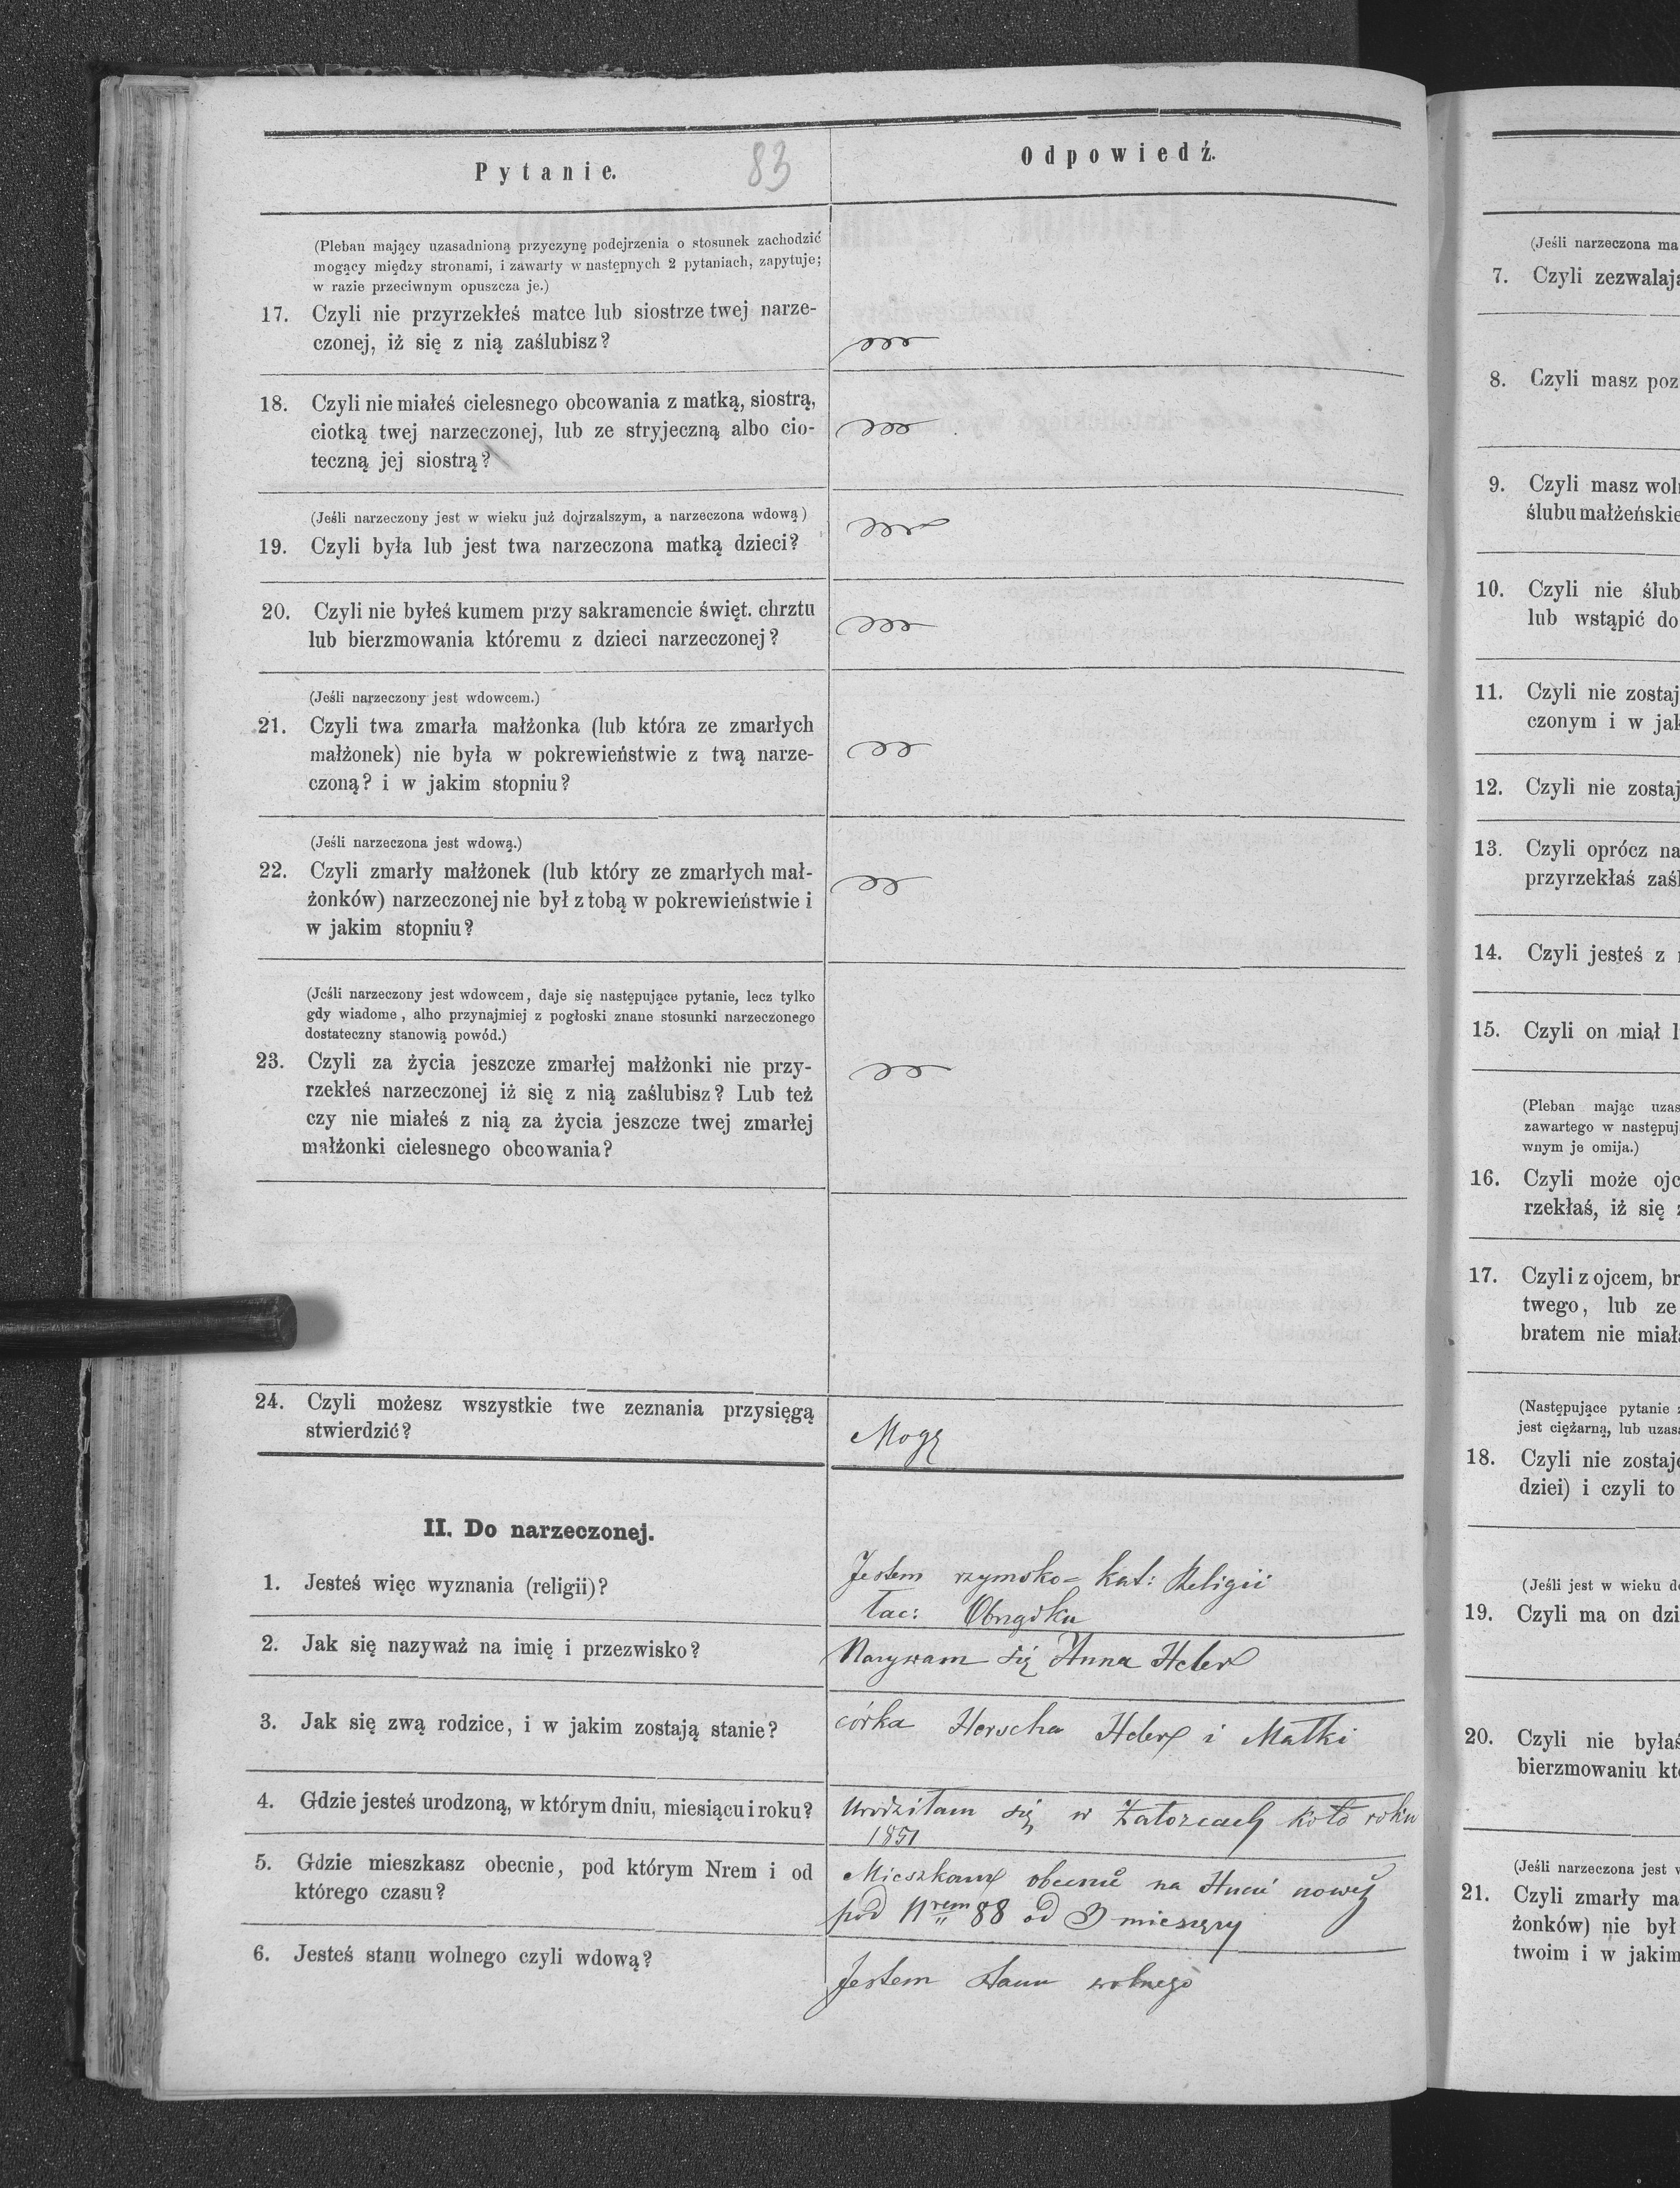 Pytanie.
83
Odpowiedź.
(Pleban mający uzasadnioną przyczynę podejrzenia o stosunek zachodzić
mogący między stronami, i zawarty w następnych 2 pytaniach, zapytuje;
w razie przeciwnym opuszcza je.)
17. Czyli nie przyrzekłeś matce lub siostrze twej narze-
czonej, iż się z nią zaślubisz?
18. Czyli nie miałeś cielesnego obcowania z matką, siostrą,
ciotką twej narzeczonej, lub ze stryjeczną albo cio-
teczną jej siostrą?
(Jeśli narzeczony jest w wieku już dojrzalszym, a narzeczona wdową)
19. Czyli była lub jest twa narzeczona matką dzieci?
20. Czyli nie byłeś kumem przy sakramencie święt. chrztu
lub bierzmowania któremu z dzieci narzeczonej?
(Jeśli narzeczony jest wdowcem.)
21. Czyli twa zmarła małżonka (lub która ze zmarłych
małżonek) nie była w pokrewieństwie z twą narze-
czoną? i w jakim stopniu?
(Jeśli narzeczona jest wdową.)
22. Czyli zmarły małżonek (lub który ze zmarłych mał-
żonków) narzeczonej nie był z tobą w pokrewieństwie i
w jakim stopniu?
(Jeśli narzeczony jest wdowcem, daje się następujące pytanie, lecz tylko
gdy wiadome, alho przynajmiej z pogłoski znane stosunki narzeczonego
dostateczny stanowią powód.)
23. Czyli za życia jeszcze zmarłej małżonki nie przy-
rzekłeś narzeczonej iż się z nią zaślubisz? Lub też
czy nie miałeś z nią za życia jeszcze twej zmarłej
małżonki cielesnego obcowania?
24. Czyli możesz wszystkie twe zeznania przysięgą
stwierdzić?
Mogę
II. Do narzeczonej.
1. Jesteś więc wyznania (religii)?
Jestem rzymsko-kat: Religii
łac: Obrządku
2. Jak się nazyważ na imię i przezwisko?
Nazywam się Anna Heler
3. Jak się zwą rodzice, i w jakim zostają stanie?
córka Herscha Heler i Matki
4. Gdzie jesteś urodzoną, w którym dniu, miesiącu i roku?
Urodziłam się w Załozcach koło roku
1851
5. Gdzie mieszkasz obecnie, pod którym Nrem i od
którego czasu?
Mieszkam obecnie na Hucie nowej
pod Nrem 88 od 3 miesięcy
6. Jesteś stanu wolnego czyli wdową?
Jestem stanu wolnego
(Jeśli narzeczona ma
7. Czyli zezwalają
8. Czyli masz poz
9. Czyli masz wol
ślubu małżeńskie
10. Czyli nie ślub
lub wstąpić do
11. Czyli nie zostaj
czonym i w jak
12. Czyli nie zostaj
13. Czyli oprócz na
przyrzekłaś zaśl
14. Czyli jesteś z
15. Czyli on miał l
(Pleban mając uzas
zawartego w następuj
wnym je omija.)
16. Czyli może ojc
rzekłaś, iż się z
17. Czyli z ojcem, br
twego, lub ze
bratem nie miała
(Następujące pytanie z
jest ciężarną, lub uzasa
18. Czyli nie zostaje
dziei) i czyli to
(Jeśli jest w wieku do
19. Czyli ma on dzi
20. Czyli nie byłaś
bierzmowaniu kt
(Jeśli narzeczona jest w
21. Czyli zmarły ma
żonków) nie był
twoim i w jakim